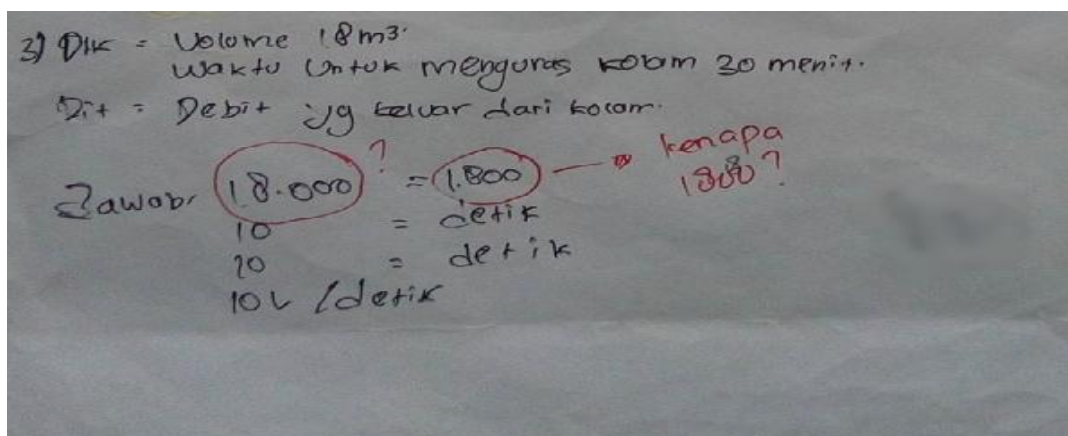 3) Dik = Volume 18 m3.
Waktu untuk menguras kolam 30 menit.
Dit = Debit yg keluar dari kolam.
Jawab, 18.000 ? = 1.800 → kenapa
1800?
10 = detik
20 = detik
10 L /detik